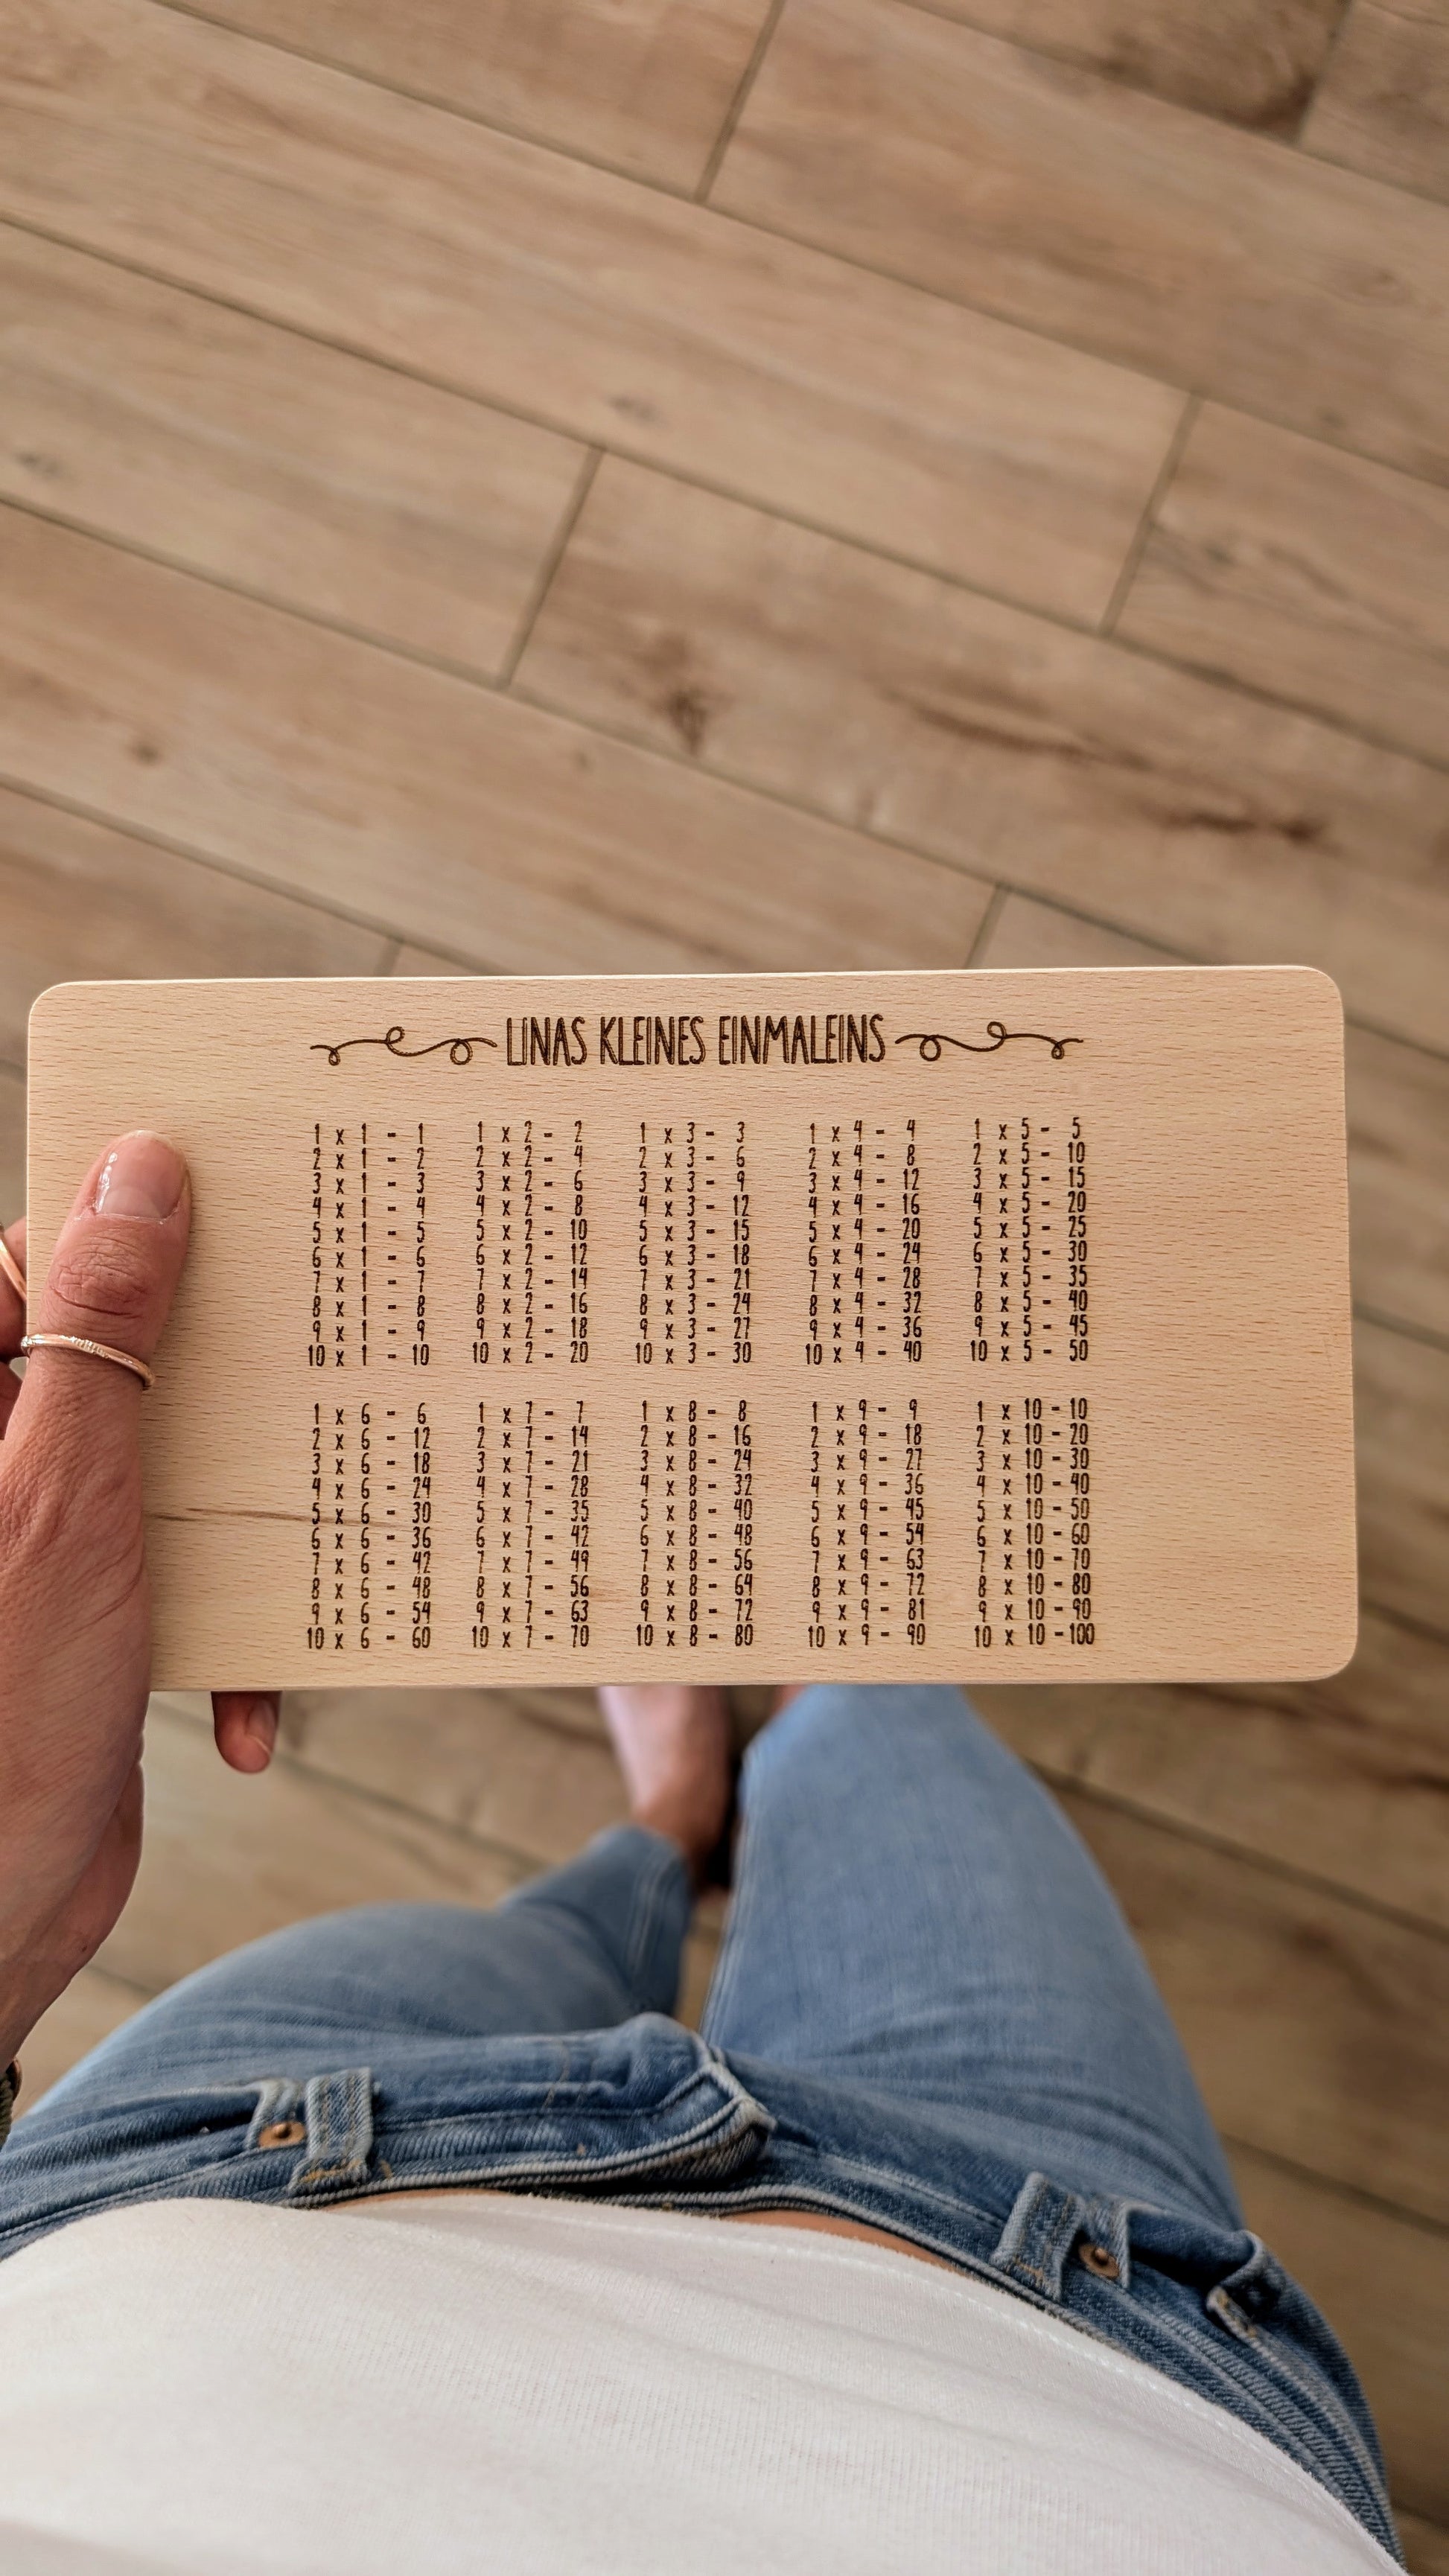 LINAS KLEINES EINMALEINS
1 x 1 - 1 1 x 2 - 2 1 x 3 - 3 1 x 4 - 4 1 x 5 - 5
2 x 1 - 2 2 x 2 - 4 2 x 3 - 6 2 x 4 - 8 2 x 5 - 10
3 x 1 - 3 3 x 2 - 6 3 x 3 - 9 3 x 4 - 12 3 x 5 - 15
4 x 1 - 4 4 x 2 - 8 4 x 3 - 12 4 x 4 - 16 4 x 5 - 20
5 x 1 - 5 5 x 2 - 10 5 x 3 - 15 5 x 4 - 20 5 x 5 - 25
6 x 1 - 6 6 x 2 - 12 6 x 3 - 18 6 x 4 - 24 6 x 5 - 30
7 x 1 - 7 7 x 2 - 14 7 x 3 - 21 7 x 4 - 28 7 x 5 - 35
8 x 1 - 8 8 x 2 - 16 8 x 3 - 24 8 x 4 - 32 8 x 5 - 40
9 x 1 - 9 9 x 2 - 18 9 x 3 - 27 9 x 4 - 36 9 x 5 - 45
10 x 1 - 10 10 x 2 - 20 10 x 3 - 30 10 x 4 - 40 10 x 5 - 50
1 x 6 - 6 1 x 7 - 7 1 x 8 - 8 1 x 9 - 9 1 x 10 - 10
2 x 6 - 12 2 x 7 - 14 2 x 8 - 16 2 x 9 - 18 2 x 10 - 20
3 x 6 - 18 3 x 7 - 21 3 x 8 - 24 3 x 9 - 27 3 x 10 - 30
4 x 6 - 24 4 x 7 - 28 4 x 8 - 32 4 x 9 - 36 4 x 10 - 40
5 x 6 - 30 5 x 7 - 35 5 x 8 - 40 5 x 9 - 45 5 x 10 - 50
6 x 6 - 36 6 x 7 - 42 6 x 8 - 48 6 x 9 - 54 6 x 10 - 60
7 x 6 - 42 7 x 7 - 49 7 x 8 - 56 7 x 9 - 63 7 x 10 - 70
8 x 6 - 48 8 x 7 - 56 8 x 8 - 64 8 x 9 - 72 8 x 10 - 80
9 x 6 - 54 9 x 7 - 63 9 x 8 - 72 9 x 9 - 81 9 x 10 - 90
10 x 6 - 60 10 x 7 - 70 10 x 8 - 80 10 x 9 - 90 10 x 10 - 100